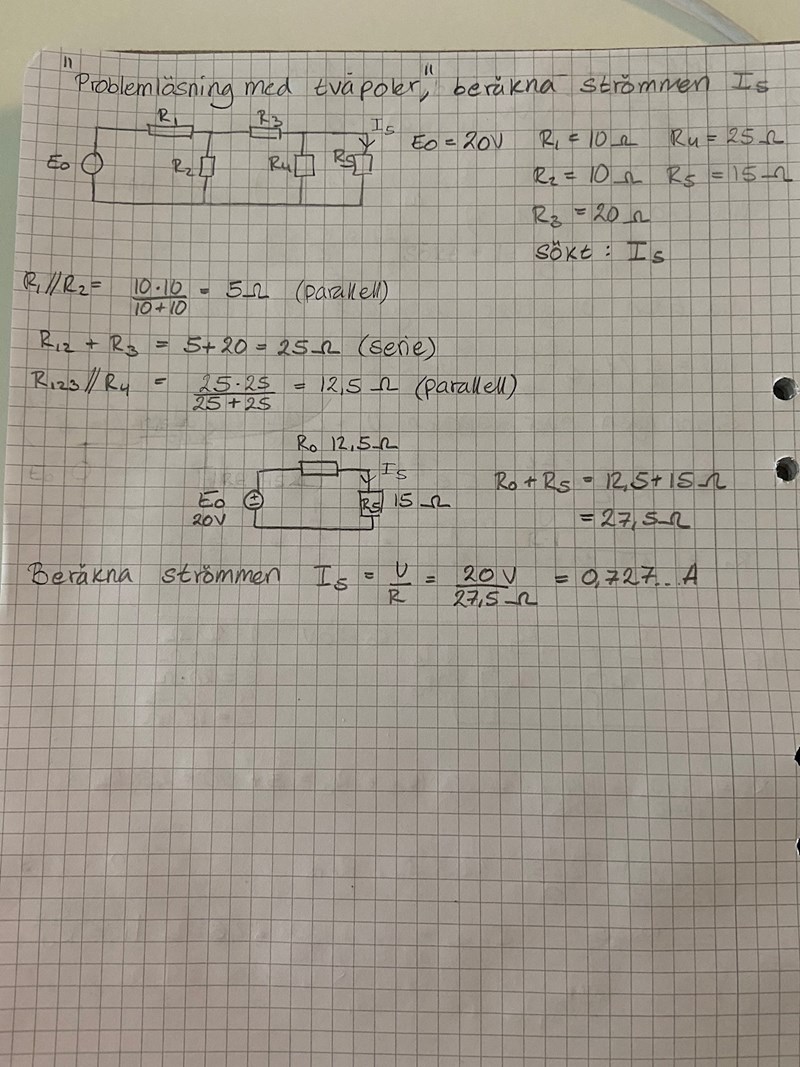 "Problemlösning med tvåpoler," beräkna strömmen I5
R1 R3 I5
E0 R2 R4 R5
E0 = 20V R1 = 10Ω R4 = 25Ω
R2 = 10Ω R5 = 15Ω
R3 = 20Ω
sökt : I5
R1//R2 = 10·10/10+10 = 5Ω (parallell)
R12 + R3 = 5+20 = 25Ω (serie)
R123//R4 = 25·25/25+25 = 12,5Ω (parallell)
R0 12,5Ω
I5
E0 20V R5 15Ω
R0 + R5 = 12,5 + 15Ω
= 27,5Ω
Beräkna strömmen I5 = U/R = 20V/27,5Ω = 0,727.. A